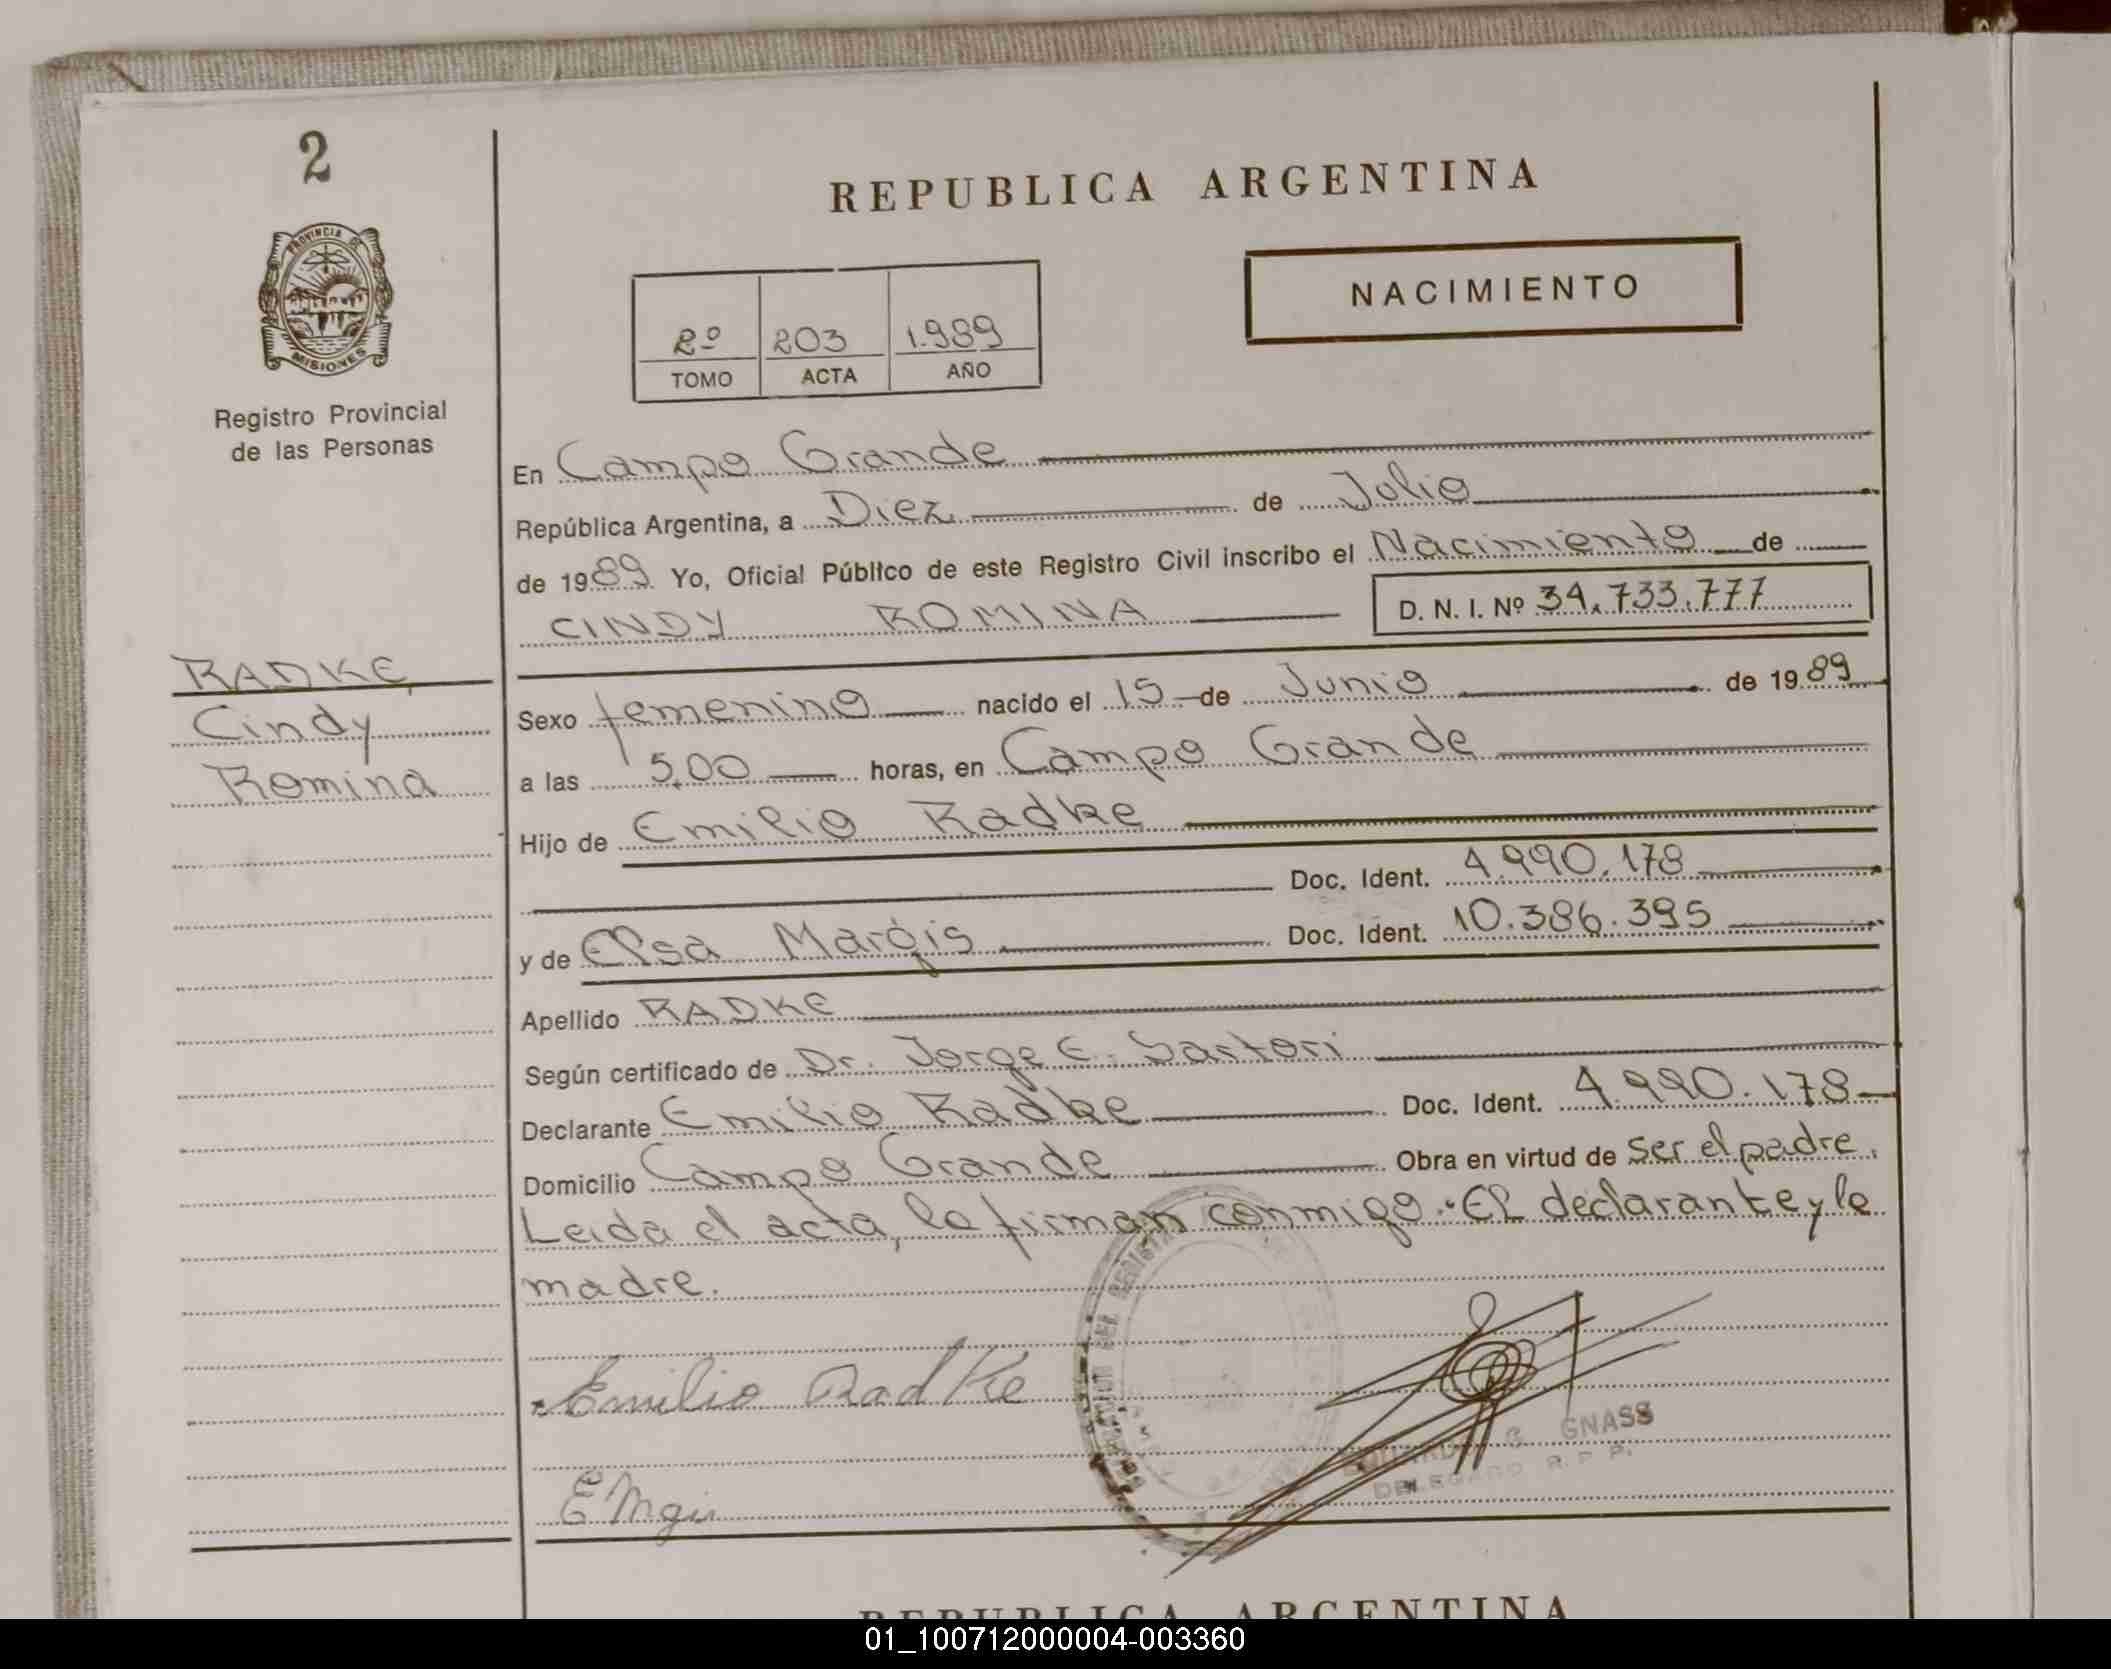 2
PROVINCIA DE
MISIONES
Registro Provincial
de las Personas
RADKE
Cindy
Romina
REPUBLICA ARGENTINA
2º 203 1.989
TOMO ACTA AÑO
NACIMIENTO
En Campo Grande
República Argentina, a Diez de Julio
de 1989 Yo, Oficial Público de este Registro Civil inscribo el Nacimiento de
CINDY ROMINA D. N. I. Nº 34.733.777
Sexo femenino nacido el 15 de Junio de 1989
a las 5,00 horas, en Campo Grande
Hijo de Emilio Radke
Doc. Ident. 4.990.178
y de Elsa Margis Doc. Ident. 10.386.395
Apellido RADKE
Según certificado de Dr. Jorge E. Sartori
Declarante Emilio Radke Doc. Ident. 4.990.178
Domicilio Campo Grande Obra en virtud de ser el padre.
Leida el acta, la firman conmigo. El declarante y la
madre.
Emilio Radke
G GNASS
DELEGADO R. P. P.
REPUBLICA ARGENTINA
01_100712000004-003360